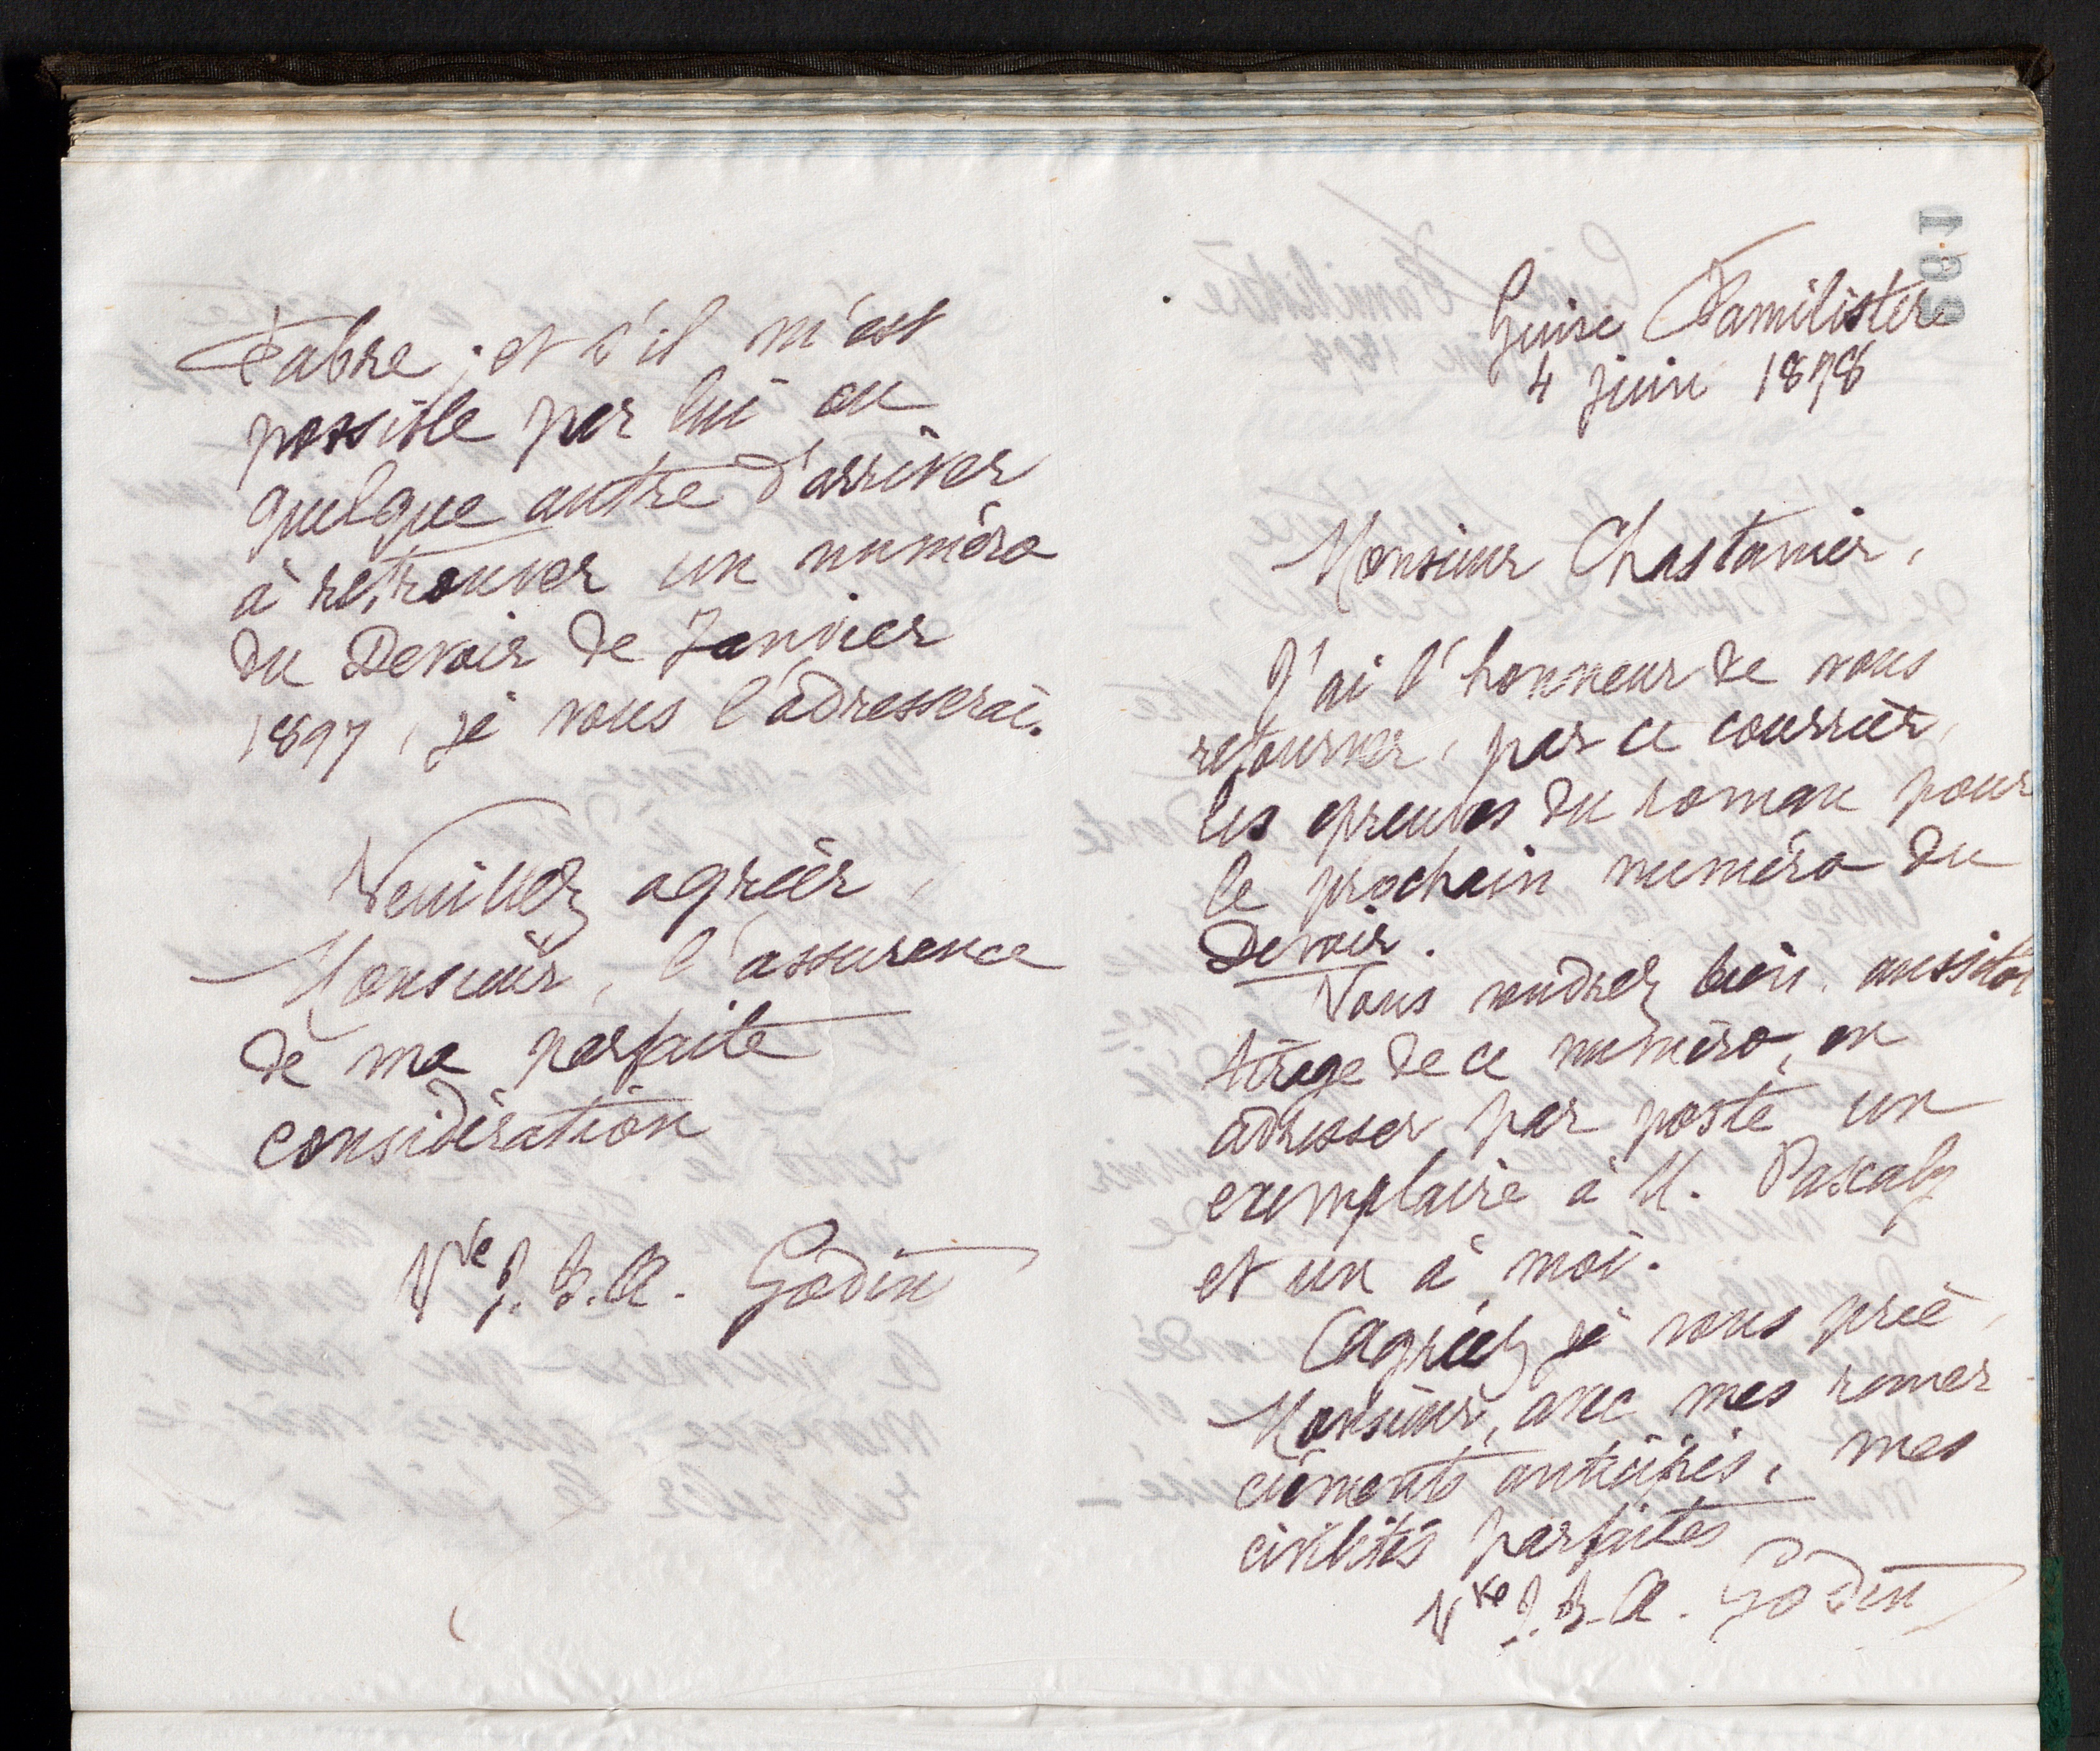 Fabre ; et s'il m'est
possible par lui ou
quelque autre d'arriver
à retrouver un numéro
du Devoir de Janvier
1897, je vous l'adresserai.
Veuillez agréer,
Monsieur, l'assurance
de ma parfaite
considération
Vve J. B. A. Godin
Guise Familistère
4 juin 1898
Monsieur Chastanier,
J'ai l'honneur de vous
retourner, par ce courrier,
les épreuves du roman pour
le prochain numéro du
Devoir.
Vous voudrez bien, aussitôt
tirage de ce numéro, en
adresser par poste un
exemplaire à M. Pascaly
et un à moi.
Agréez je vous prie,
Monsieur, avec mes remer-
ciements anticipés, mes
civilités parfaites
Vve J. B. A. Godin